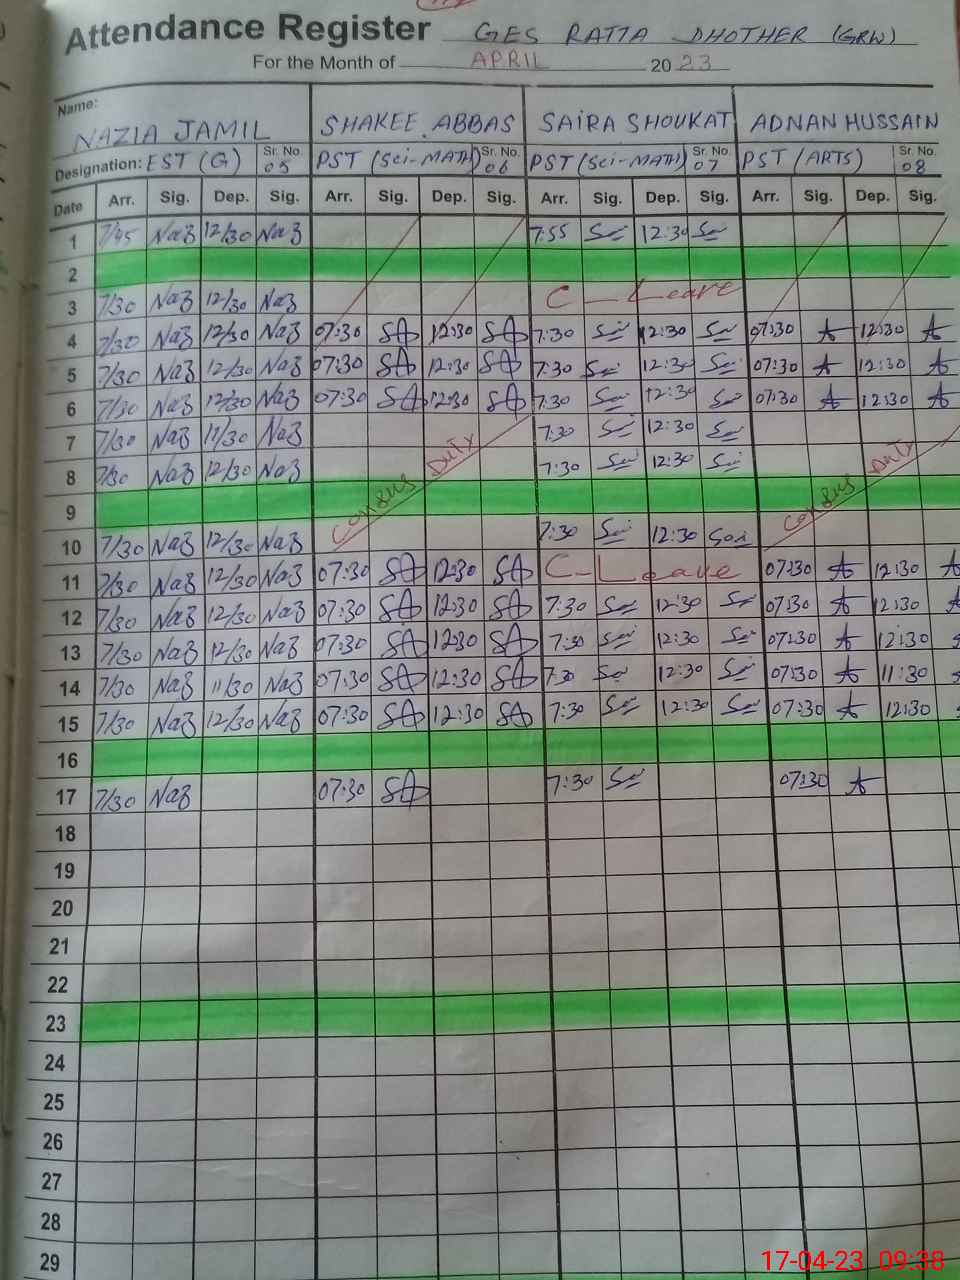 Attendance Register GES RATTA DHOTHER (GRW)
For the Month of APRIL 2023
Name: NAZIA JAMIL SHAKEE ABBAS SAIRA SHOUKAT ADNAN HUSSAIN
Designation: EST (G) Sr. No. 05 PST (Sci-MATH) Sr. No. 06 PST (Sci-MATH) Sr. No. 07 PST (ARTS) Sr. No. 08
Date Arr. Sig. Dep. Sig. Arr. Sig. Dep. Sig. Arr. Sig. Dep. Sig. Arr. Sig. Dep. Sig.
1 7/45 Naz 12/30 Naz 7:55 12:30
2
3 7/30 Naz 12/30 Naz C-Leave
4 7/30 Naz 12/30 Naz 07:30 SA 12:30 SA 7:30 12:30 07:30 A 12:30 A
5 7/30 Naz 12/30 Naz 07:30 SA 12:30 SA 7:30 12:30 07:30 A 12:30 A
6 7/30 Naz 12/30 Naz 07:30 SA 12:30 SA 7:30 12:30 07:30 A 12:30 A
7 7/30 Naz 11/30 Naz 7:30 12:30
8 7/30 Naz 12/30 Naz Consus Duty 7:30 12:30 Consus Duty
9
10 7/30 Naz 12/30 Naz 7:30 12:30
11 7/30 Naz 12/30 Naz 07:30 SA 12:30 SA C-Leave 07:30 A 12:30 A
12 7/30 Naz 12/30 Naz 07:30 SA 12:30 SA 7:30 12:30 07:30 A 12:30
13 7/30 Naz 12/30 Naz 07:30 SA 12:30 SA 7:30 12:30 07:30 A 12:30
14 7/30 Naz 11/30 Naz 07:30 SA 12:30 SA 7:30 12:30 07:30 A 11:30
15 7/30 Naz 12/30 Naz 07:30 SA 12:30 SA 7:30 12:30 07:30 A 12:30
16
17 7/30 Naz 07:30 SA 7:30 07:30 A
18
19
20
21
22
23
24
25
26
27
28
29
17-04-23 09:38